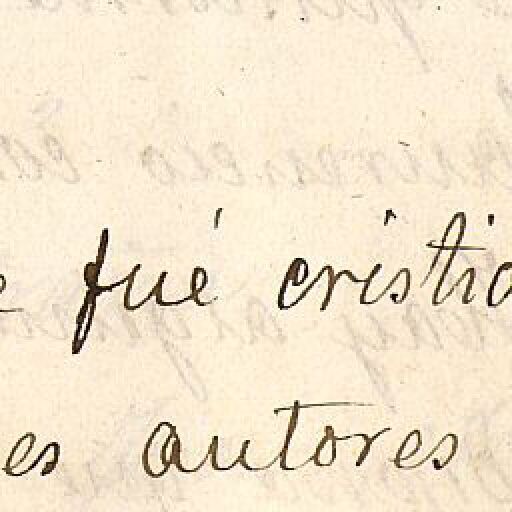 fué cristia
es autores